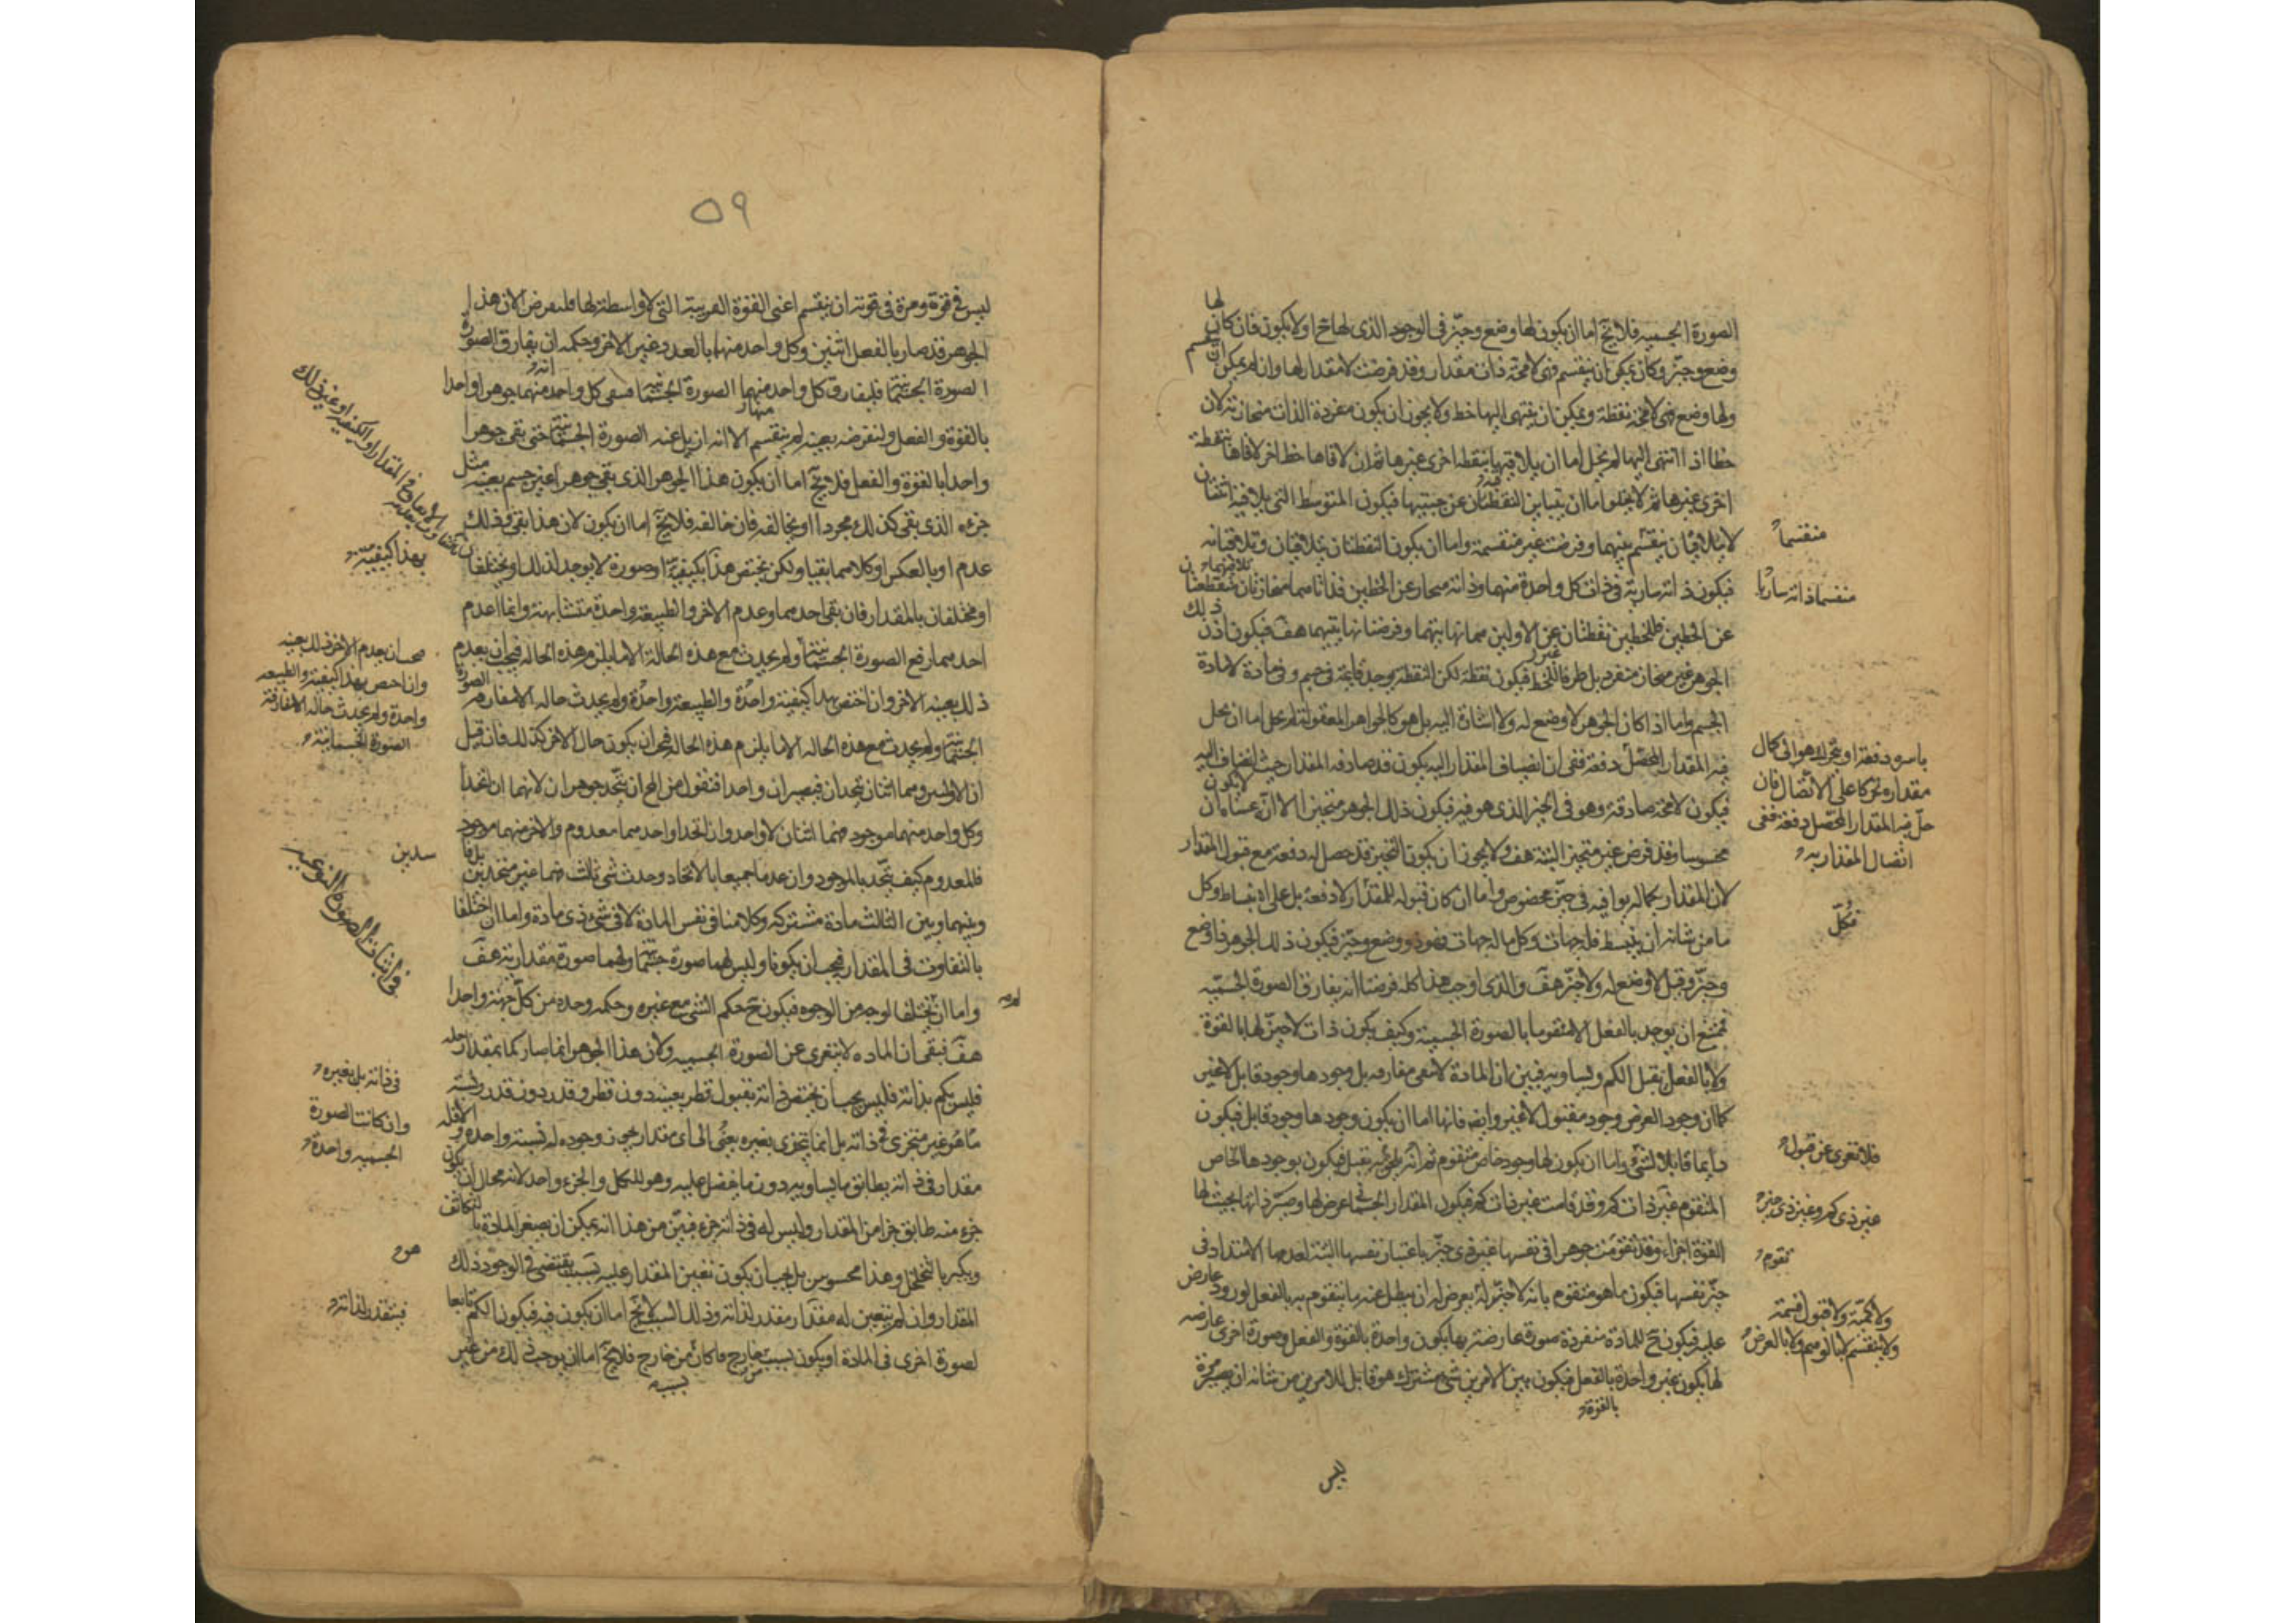 الصورة الجسمية فلا يخ اما ان يكون لها وضع وحيز في الوجود الذي لها ح او لا يكون فان كان لها
وضع وحيز وكان يمكن ان ينقسم فهى لا محة ذات مقدار وقد فرضت لا مقدار لها وان لم يمكن ان تنقسم
ولها وضع فهى لا محة نقطة ويمكن ان ينتهى اليها خط ولا يجوز ان يكون مفردة الذات منحازته لان
خطا اذا انتهى اليها لم يخل اما ان يلاقيها بنقطة اخرى غيرها ثم ان لاقاها خط اخر لاقاها بنقطة
اخرى غيرها ثم لا يخلوا ما ان يتباين النقطتان عن جنبيها فيكون المتوسط التي يلاقيه اثنتان
لا يتلاقيان ينقسم بينهما وفرضت غير منقسمة واما ان يكون النقطتان يتلاقيان وتلاقيانه
فيكون ذاته سارية في ذات كل واحدة منهما وذاته منحاز عن الخطين فذاتاهما منحازتان منقطعتان
عن الخطين فللخطين نقطتان غير الاولين هما نهايتهما وفرضنا نهايتيهما هف فيكون اذن ذلك
الجوهر غير منحاز منفرد بل طرفا للخط فيكون نقطة لكن النقطة يوجد قايمة في جسم وفى مادة لا مادة
الجسم واما اذا كان الجوهر لا وضع له ولا اشارة اليه بل هو كالجواهر المعقولة لم يخل اما ان يحل
فيه المقدار المحصل دفعة ففى ان انضياف المقدار اليه يكون قد صادفه المقدار حيث انضاف اليه
فيكون لا محة صادفه وهو في الحيز الذي هو فيه فيكون ذلك الجوهر متحيزا الا انه عسا ان لا يكون
محسوسا وقد فرض غير متحيز البتة هف ولا يجوز ان يكون التحيز قد حصل له دفعة مع قبول المقدار
لان المقدار بكماله يوافيه في حيز مخصوص واما ان كان قبوله للمقدار لا دفعة بل على انبساط وكل
ما من شانه ان ينبسط فله جهات وكل ماله جهات فهو ذو وضع وحيز فيكون ذلك الجوهر ذا وضع
وحيز وقيل لا وضع له ولا حيز هف والذي اوجب هذا كله فرضنا انه يفارق الصورة الجسمية
فممتنع ان يوجد بالفعل الا متقوما بالصورة الجسمية وكيف يكون ذات لا حيز لها بالقوة
ولا بالفعل يقبل الكم ويساويه فبين ان المادة لا تبقى مفارقه بل وجودها وجود قابل لا غير
كما ان وجود العرض وجود مقبول لا غير وايضا فانها اما ان يكون وجودها وجود قابل فيكون
دايما قابلا لشيء واما ان يكون لها وجود خاص متقوم ثم انه يلحقه يقبل فيكون بوجودها الخاص
المتقوم غير ذات كم وقد قامت غير ذات كم فيكون المقدار الجسمانى عرض لها وصير ذاتها بحيث لها
بالقوة اجزاء وقد تقومت جوهرا في نفسها غير ذى حيز باعتبار نفسها البتة لعدمها الامتداد في
حيز نفسها فيكون ما هو متقوم بانه لا حيز له يعرض له ان يبطل عنه ما يتقوم به بالفعل لورود عارض
عليه فيكون ح للمادة منفردة صورة عارضة بها يكون واحدة بالقوة والفعل وصورة اخرى عارضه
لها يكون غير واحدة بالفعل فيكون بين الامرين شئ مشترك هو قابل للامرين من شانه ان يصير مرة
بالقوة
ليس
منقسما
منقسما ذاته ساريا
باسره دفعة او يتحرك هو الى كمال
مقداره تحركا على الاتصال فان
حل فيه المقدار المحصل دفعة ففى
اتصال المقدار به
فكل
فلا تعرى عن قبول
غير ذى كم وغير ذى حيز
تقوم
ولا كمية ولا قبول قسمة
ولا ينقسم لا بالوهم ولا بالعرض
٥٩
ليس في قوة ومرة في قوته ان ينقسم اعنى القوة القريبة التي لا واسطة لها فلنفرض الان هذا
الجوهر قد صار بالفعل اثنين وكل واحد منهما بالعدد غير الاخر وحكمه ان يفارق الصورة
الصورة الجسمانية فليفارق كل واحد منهما الصورة الجسمانية فيبقى كل واحد منهما جوهرا واحدا
بالقوة والفعل ولنفرضه بعينه لم ينقسم الا انه ازيل عنه الصورة الجسمانية حتى بقى جوهرا
واحدا بالقوة والفعل فلا يخ اما ان يكون هذا الجوهر الذي بقى جوهرا غير جسم بعينه مثل
جزءه الذي بقى كذلك مجردا او يخالفه فان خالفه فلا يخ اما ان يكون لان هذا بقى وذلك
عدم او بالعكس او كلاهما بقيا ولكن يختص هذا بكيفية او صورة لا يوجد لذلك او يختلفا
او مختلفان بالمقدار فان بقى احدهما وعدم الاخر والطبيعة واحدة متشابهة وانما اعدم
احدهما رفع الصورة الجسمانية ولم يحدث مع هذه الحالة الا ما يلزم هذه الحاله فيجب ان يعدم
ذلك بعينه الاخر وان اختص بهذا كيفية واحدة والطبيعة واحدة ولم يحدث حاله الا مفارقه الصورة
الجسمانية ولم يحدث مع هذه الحاله الا ما يلزم هذه الحاله فيجب ان يكون حال الاخر كذلك فان قيل
ان الاولين وهما اثنان يتحدان فيصيران واحدا فنقول من المح ان يتحد جوهران لانهما ان اتحدا
وكل واحد منهما موجود فهما اثنان لا واحد وان اتحدا واحدهما معدوم والاخر منهما موجود
فالمعدوم كيف يتحد بالموجود وان عدما جميعا بالاتحاد وحدث شئ ثالث فهما غير متحدين بل فاسدين
وبينهما وبين الثالث مادة مشتركه وكلامنا في نفس المادة لا في شئ ذى مادة واما ان اختلفا
بالتفاوت في المقدار فيجب ان يكونا وليس لهما صورة جسمانية ولهما صورة مقدارية هف
واما ان يختلفا لوجه من الوجوه فيكون ح حكم الشئ مع غيره وحكمه وحده من كل جهة واحدا
هف فبقى ان الماده لا تتعرى عن الصورة الجسميه ولان هذا الجوهر انما صار كما بمقدار حله
فليس بكم بذاته فليس يجب ان يختص ذاته بقبول قطر بعينه دون قطر وقدر دون قدر
ما هو غير متجزى في ذاته بل انما يتجزى بغيره الى اى مقدار يجوز وجوده له نسبة واحدة والا فله
مقدار في ذاته يطابق ما يساويه دون ما يفضل عليه وهو للكل والجزء واحد لانه محال ان يكون
جزء منه طابق جزا من المقدار وليس له في ذاته جزء فبين من هذا انه يمكن ان يصغر المادة بالتكاثف
ويكبر بالتخلخل وهذا محسوس بل يجب ان يكون تعين المقدار عليه بسبب يقتضى في الوجود ذلك
المقدار وان لم يتعين له مقدار مقدر لذاته وذلك السبب لا يخ اما ان يكون فيه فيكون الكم تابعا
لصورة اخرى في المادة او يكون بسبب خارج فان كان من خارج فلا يخ اما ان يوجب ذلك من غير
بهذا كيفية
صحب ان يعدم الاخر ذلك بعينه
وان اختص بهذا كيفية والطبيعه
واحدة ولم يحدث حاله الا مفارقة
الصورة الجسمانية
سدين
في اثبات الصورة النوعية
في ذاته بل بغيره
وان كانت الصورة
الجسميه واحدة
هو
فيتقدر لذاته